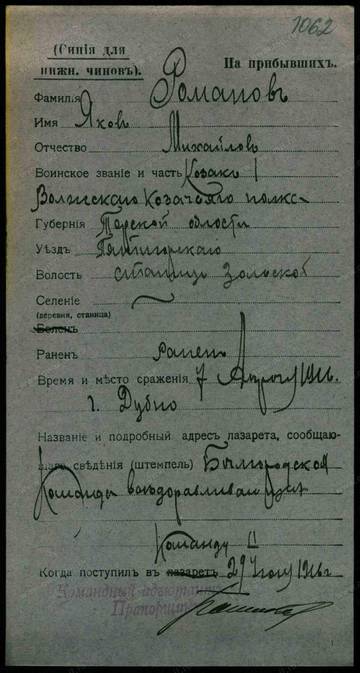 1062
(Синія для
нижн. чиновъ).
На прибывшихъ.
Фамилія Романовъ
Имя Яковъ
Отчество Михайловъ
Воинское званіе и часть Козакъ 1
Волжскаго Козачьяго полка
Губернія Терской области
Уѣздъ Пятигорскаго
Волость станица Зольской
Селеніе
(деревня, станица)
Боленъ
Раненъ раненъ
Время и мѣсто сраженія 7 1916г.
г. Дубно
Названіе и подробный адресъ лазарета, сообщаю-
щаго свѣдѣнія (штемпель)
Команды выздоравливающихъ
Команду II
Когда поступилъ въ лазаретъ 29 1916г
Командный адъютантъ
Прапорщикъ